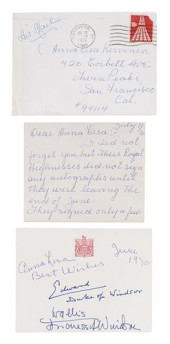 Air Mail
Anna Lisa Korvenen
420 Corbett Ave
Twin Peaks
San Francisco
Cal.
94114
July 9/
Dear Anna Lisa
I did not
forget you but Their Royal
Highnesses did not sign
any autographs until
They were leaving the
end of June
They signed only a few
June
Anna Lisa 1970
Best Wishes
Edward
Duke of Windsor
Wallis
Duchess of Windsor